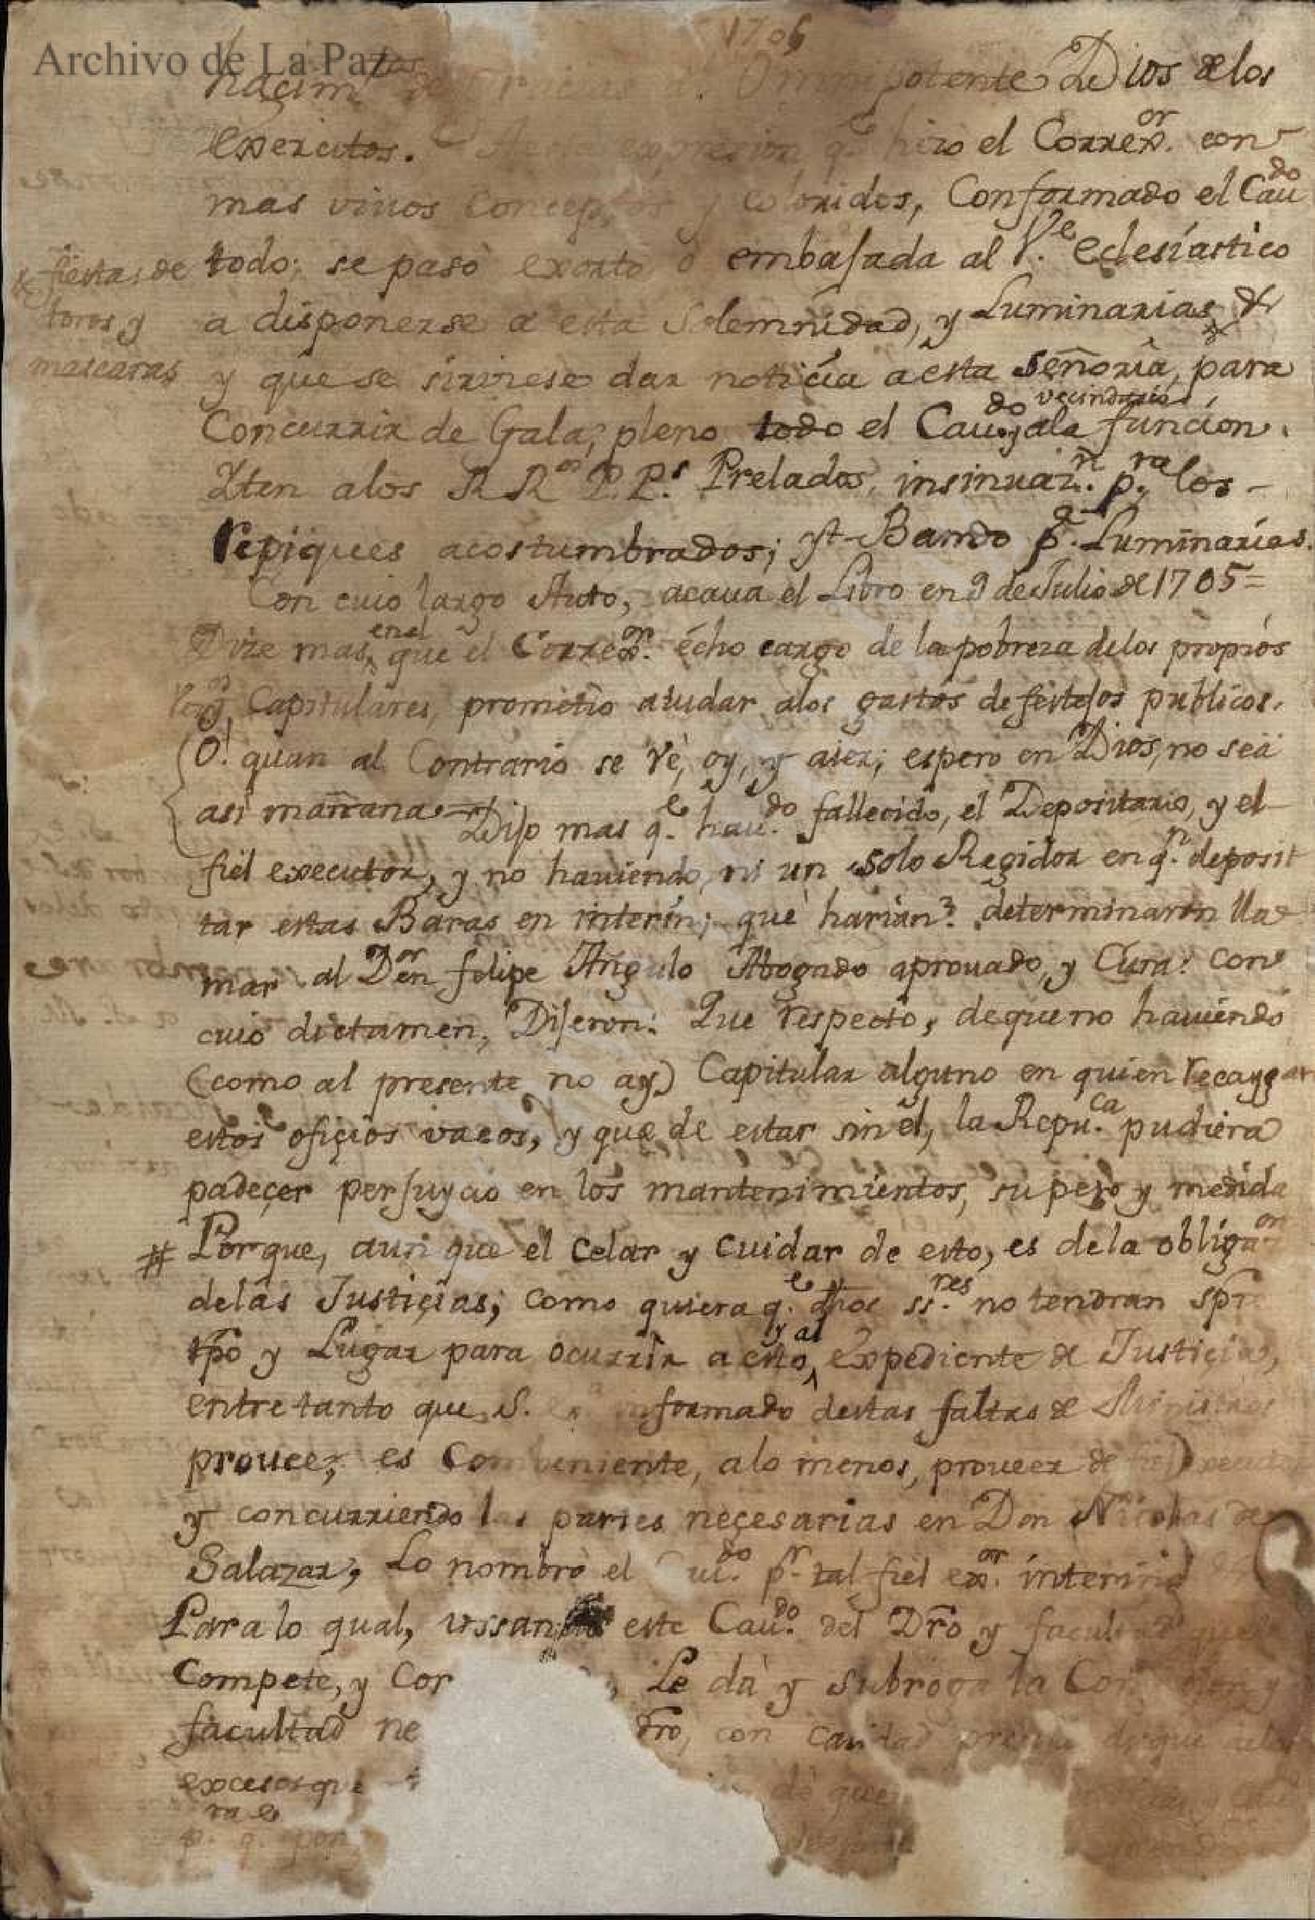 1706
Archivo de La Paz
haçim.tos Omnipotente Dios de los
exercitos. expresion q. hizo el Correx.or con
mas viuos conceptos y coloridos, Conformado el Cau.do
todo; se pasò exorto o embasada al V.e eclesiastico
a disponerse a esta Solemnidad, y Luminarias &
fiestas de
toros, y
mascaras
y que se sirviese dar noticia a esta señoria, para
Concurrir de Gala, pleno todo el Cau.do y vecindario a la funcion.
Yten a los R R.os P. P.s Prelados, insinuaz.n p.ra los
repiques acostumbrados; yt Bando p.a Luminarias.
Con cuio largo Auto, acaua el Libro en 9 de Julio de 1705 =
Dize mas, en el que el Correx.or écho cargo de la pobreza de los propios
y Capitulares, prometio aiudar a los gastos de festejos publicos.
O! quan al Contrario se vè, oy, y aier; espero en Dios, no sea
asi mañana Dijo mas q.e hau.do fallecido, el Depositario, y el
fiel executor, y no hauiendo, ni un solo Regidor en q.n deposit
tar estas Baras en interin; què harian? determinaron lla
mar al D.or Don felipe Angulo Abogado aprouado, y Cura: con
cuio dictamen, Diseron: Que respecto, de que no hauiendo
(como al presente no ay) Capitular alguno en quien recaygan
estos ofiçios vacos, y que de estar sin èl, la Repu.ca pudiera
padeçer persuyçio en los mantenimientos, su peso y medida
# Porque, aun que el celar y cuidar de esto, es de la obligaz.on
de las Justiçias; como quiera q.e dhos ss.res no tendran spre
tpo y Lugar para ocurrir a esto, y al expediente de Justiçia,
entretanto que S. informado destas faltas de Ministros
prouee, es Combeniente, a lo menos, proueer de fiel executor
y concurriendo las partes neçesarias en Don Nicolas de
Salazar, Lo nombrò el Cau.do p.r tal fiel ex.or interino
Para lo qual, ussan este Cau.do del Dro y facultad que
Compete, y Cor Le dà y subroga la Com y
facultad ne dro, con de que
exceso que de que
p.ra q.e pon